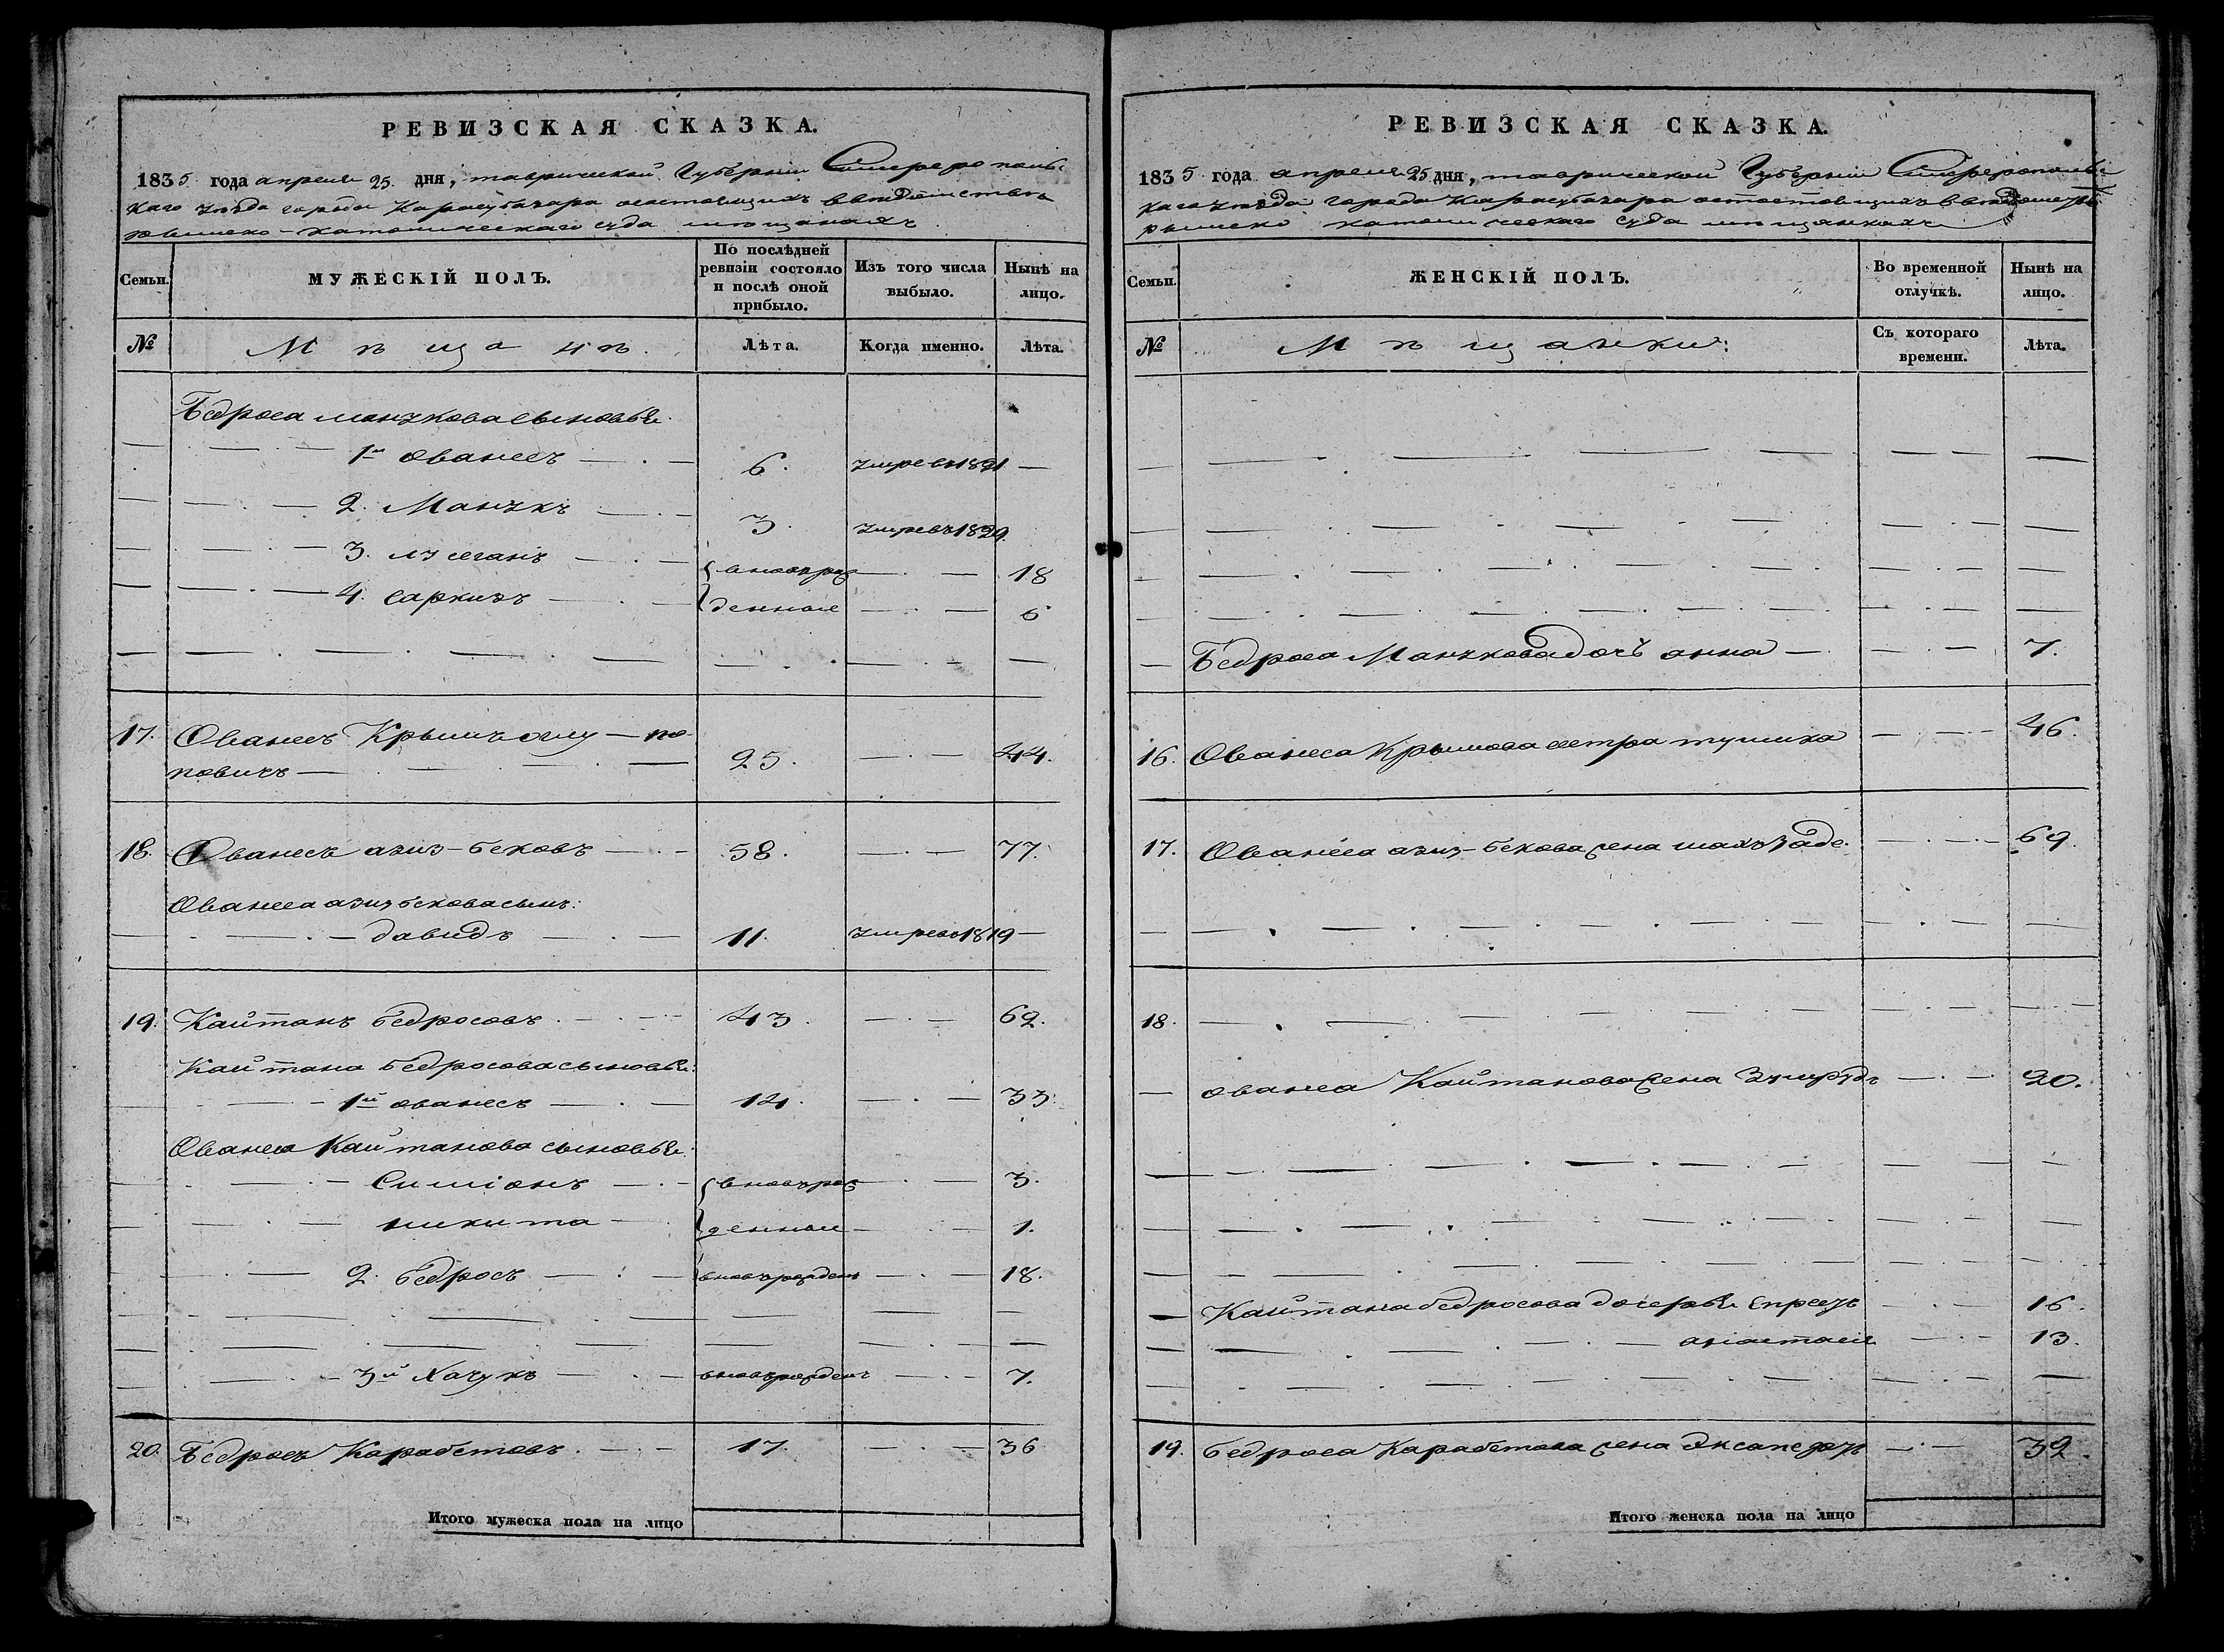 РЕВИЗСКАЯ СКАЗКА.
1835 года апреля 25. дня, таврической Губерніи Симферополь-
каго уезда города Карасубазара состоящихъ в ведомстве
римско-католическаго суда мещанахъ
Семьи.
МУЖЕСКІЙ ПОЛЪ.
По послѣдней ревизіи состояло и послѣ оной прибыло.
Изъ того числа выбыло.
Нынѣ на лицо.
№
Мѣщанѣ.
Лѣта.
Когда именно.
Лѣта.
Бедроса манукова сыновья
1й ованесъ 6. умревъ 1821
2. Манукъ 3. умревъ 1829
3. 18
4. саркизъ 6
вновьрож
денные
17. Ованесъ Крымъ оглу — по-
повичъ 25. 44.
18. Ованесъ азиз-бековъ 58. 77.
Ованеса азизбекова сынъ:
давидъ 11. умревъ 1819
19. Кайтанъ бедросовъ 43. 62.
Кайтана бедросова сыновья:
1й ованесъ 14. 33.
Ованеса Кайтанова сыновья:
Симіонъ 3.
никита 1.
вновьрож
денные
2. бедросъ вновьрожденъ 18.
3й Хачукъ вновьрожденъ 7.
20. Бедросъ Карабетовъ. 17. 36
Итого мужеска пола на лицо
РЕВИЗСКАЯ СКАЗКА.
1835 года апреля 25 дня, таврической Губерніи Симферополь-
каго уезда города Карасубазара состоящихъ в ведомстве
римско католическаго суда мещанкахъ
Семьи.
ЖЕНСКІЙ ПОЛЪ.
Во временной отлучкѣ.
Нынѣ на лицо.
№
Мѣщанки:
Съ котораго времени.
Лѣта.
Бедроса Манукова дочь анна 7.
16. Ованеса Крымова сестра тушиха 46.
17. Ованеса азиз-бекова жена шахъзаде. 69.
18.
ованеса Кайтанова жена Зумрудъ 20.
Кайтана бедросова дочерья 16.
анастасія 13.
19. бедроса Карабетова жена 32.
Итого женска пола на лицо